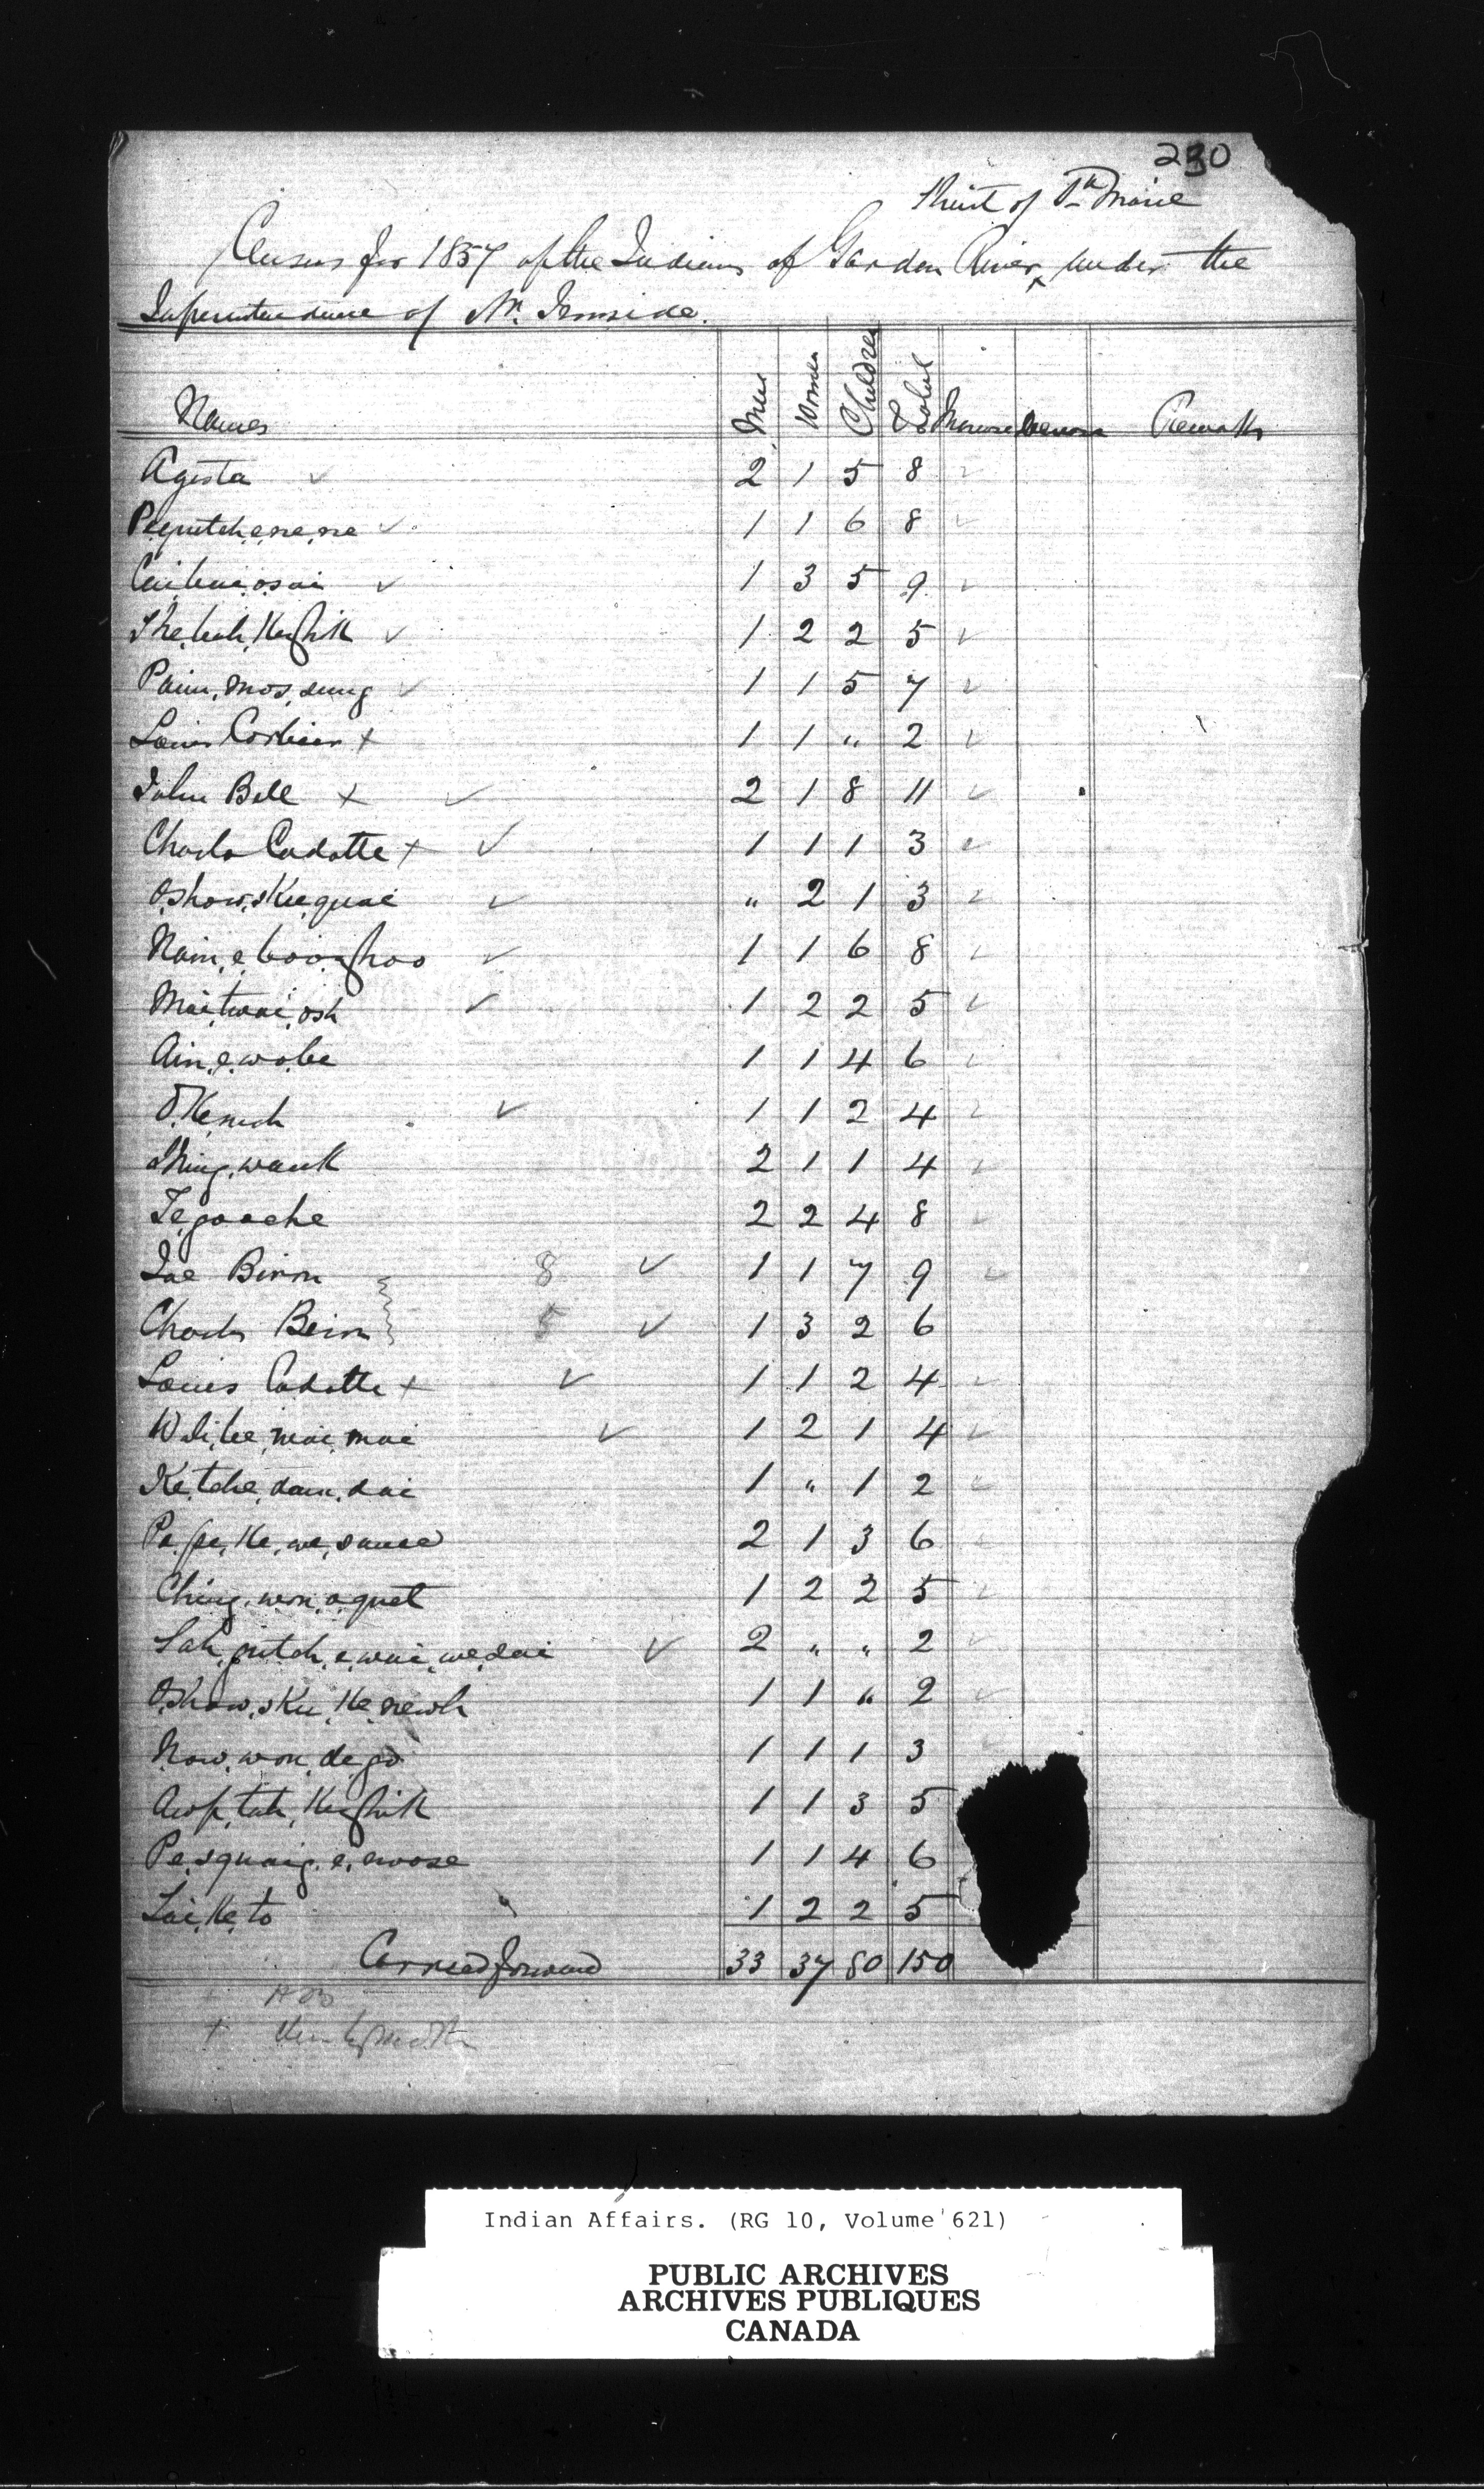 230
Sault of Ste Marie
Census for 1857 of the Indians of Garden River, under the
Superintendence of Mr. Ironside.
Names Men Women Children Total Increase Decrease Remarks
Agista ✓ 2 1 5 8 ✓
Pequtch,e,ne,ne ✓ 1 1 6 8 ✓
Cai,bai,osai ✓ 1 3 5 9 ✓
She,bah,Keshik ✓ 1 2 2 5 ✓
Paim,mos,sung ✓ 1 1 5 7 ✓
Louis Corbiere + 1 1 " 2 ✓
John Bell + ✓ 2 1 8 11 ✓
Charls Cadotte + ✓ 1 1 1 3 ✓
Oshow,skue,quai ✓ " 2 1 3 ✓
Naim,e,boo,shoo ✓ 1 1 6 8 ✓
Mai,twai,osh ✓ 1 2 2 5 ✓
Ain,e,wo,be 1 1 4 6 ✓
O,Ke,nich ✓ 1 1 2 4 ✓
Shing,wauk 2 1 1 4 ✓
Te,goache 2 2 4 8 ✓
Joe Biron 8 ✓ 1 1 7 9 ✓
Charls Biron 5 ✓ 1 3 2 6
Louis Cadotte + ✓ 1 1 2 4 ✓
Wali,be,mai,mai ✓ 1 2 1 4 ✓
Ke,tche,dam,dai 1 " 1 2 ✓
Pa,pe,Ke,we,sance 2 1 3 6
Ching,won,o,quet 1 2 2 5 ✓
Sah,gutch,e,wai,we,dai ✓ 2 " " 2 ✓
Oshow,sku,Ke,newh 1 1 " 2 ✓
Now,won,de,go 1 1 1 3 ✓
Awp,tah,Keshik 1 1 3 5
Pe,squaig,e,nwose 1 1 4 6
Tai,Ke,to 1 2 2 5
Carried forward 33 37 80 150
+
Indian Affairs. (RG 10, Volume 621)
PUBLIC ARCHIVES
ARCHIVES PUBLIQUES
CANADA